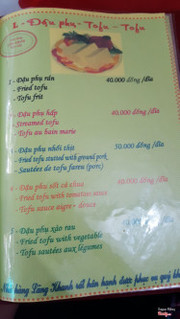 I - Đậu phụ - Tofu - Tofu
1 - Đậu phụ rán 40.000 đồng /đĩa
- Fried tofu
- Tofu frit
2 - Đậu phụ hấp 40.000 đồng /đĩa
- Steamed tofu
- Tofu au bain marie
3 - Đậu phụ nhồi thịt 50.000 đồng /đĩa
- Fried tofu stuffed with ground pork
- Sautées de tofu farcu (porc)
4 - Đậu phụ sốt cà chua 40.000 đồng /đĩa
- Fried tofu with tomatoes sauce
- Tofu sauce aigre - douce
5 - Đậu phụ xào rau
- Fried tofu with vegetable
- Tofu sautées aux légumes
Nhà hàng Tăng Khanh rất hân hạnh được phục vụ quý